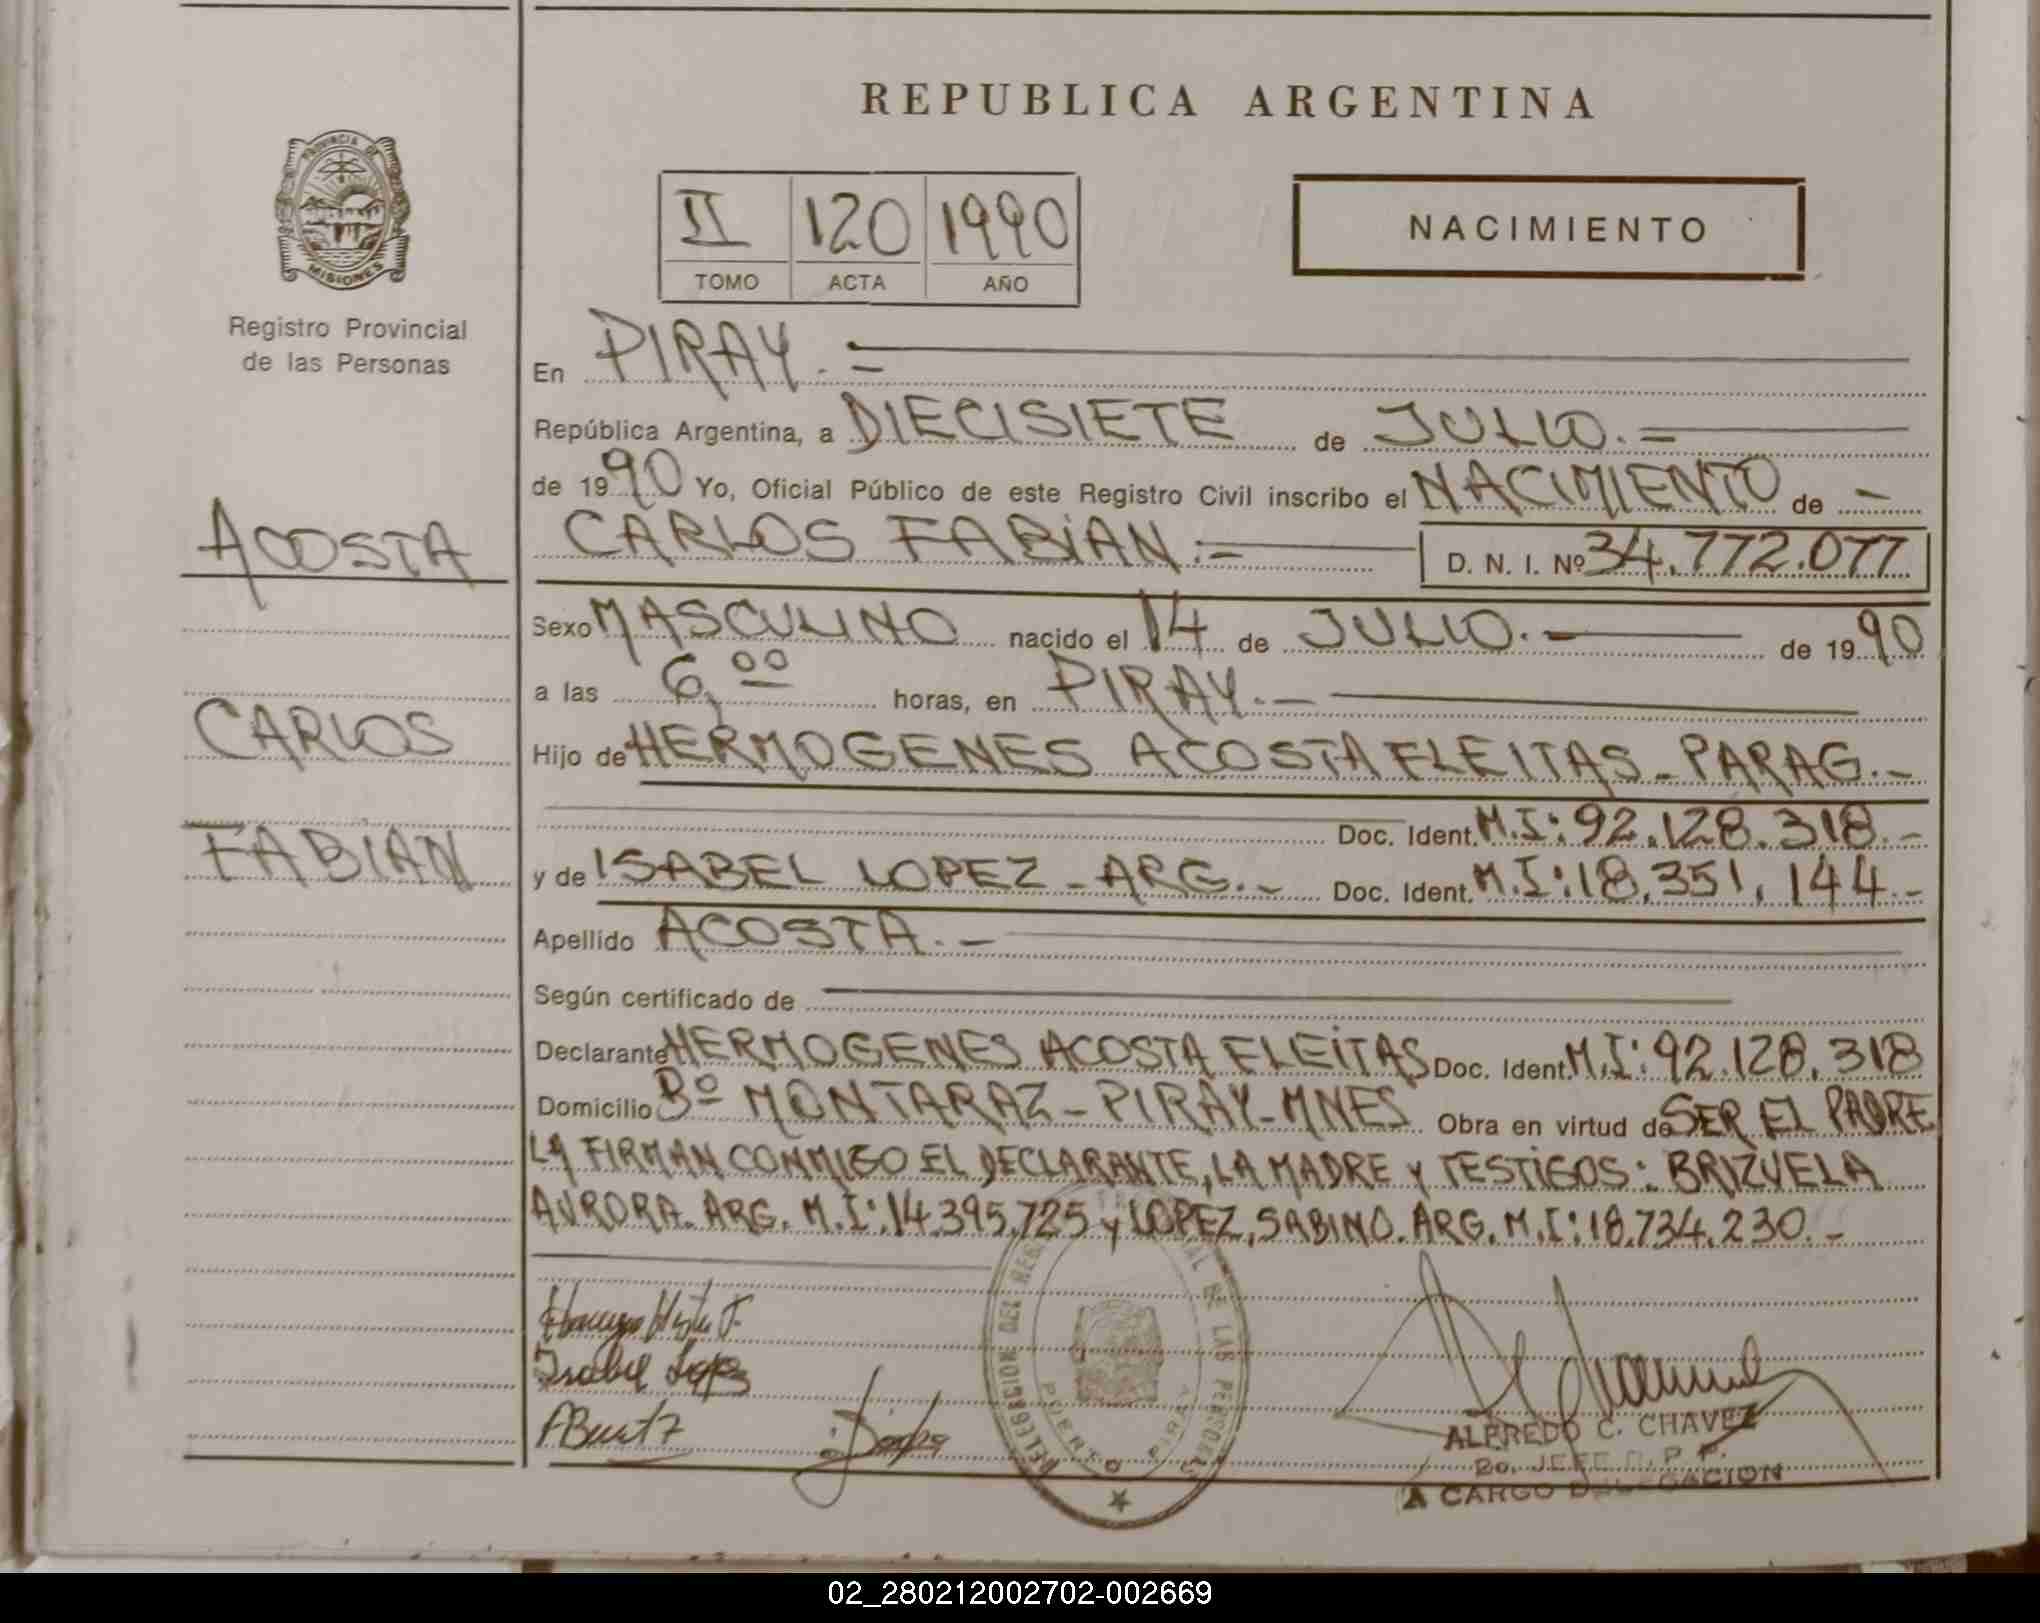 REPUBLICA ARGENTINA
PROVINCIA DE
MISIONES
Registro Provincial
de las Personas
II 120 1990
TOMO ACTA AÑO
NACIMIENTO
En PIRAY.=
República Argentina, a DIECISIETE de JULIO.=
de 1990 Yo, Oficial Público de este Registro Civil inscribo el NACIMIENTO de -
ACOSTA
CARLOS FABIAN.= D. N. I. Nº 34.772.077
Sexo MASCULINO nacido el 14 de JULIO.- de 1990
a las 6,00 horas, en PIRAY.-
CARLOS
Hijo de HERMOGENES ACOSTA FLEITAS - PARAG.-
Doc. Ident. M.I: 92.128.318.-
FABIAN
y de ISABEL LOPEZ - ARG.- Doc. Ident. M.I: 18.351.144.-
Apellido ACOSTA.-
Según certificado de
Declarante HERMOGENES ACOSTA FLEITAS Doc. Ident. M.I: 92.128.318
Domicilio Bº MONTARAZ - PIRAY - MNES Obra en virtud de SER EL PADRE
LA FIRMAN CONMIGO EL DECLARANTE, LA MADRE Y TESTIGOS: BRIZUELA
AURORA. ARG. M.I: 14.395.725 y LOPEZ, SABINO. ARG. M.I: 18.734.230.-
Isabel Lopez
DELEGACION DEL REG DE LAS PERSONAS
PUERTO PIRAY
ALFREDO C. CHAVEZ
2o. JEFE R. P. P.
A CARGO DELEGACION
02_280212002702-002669